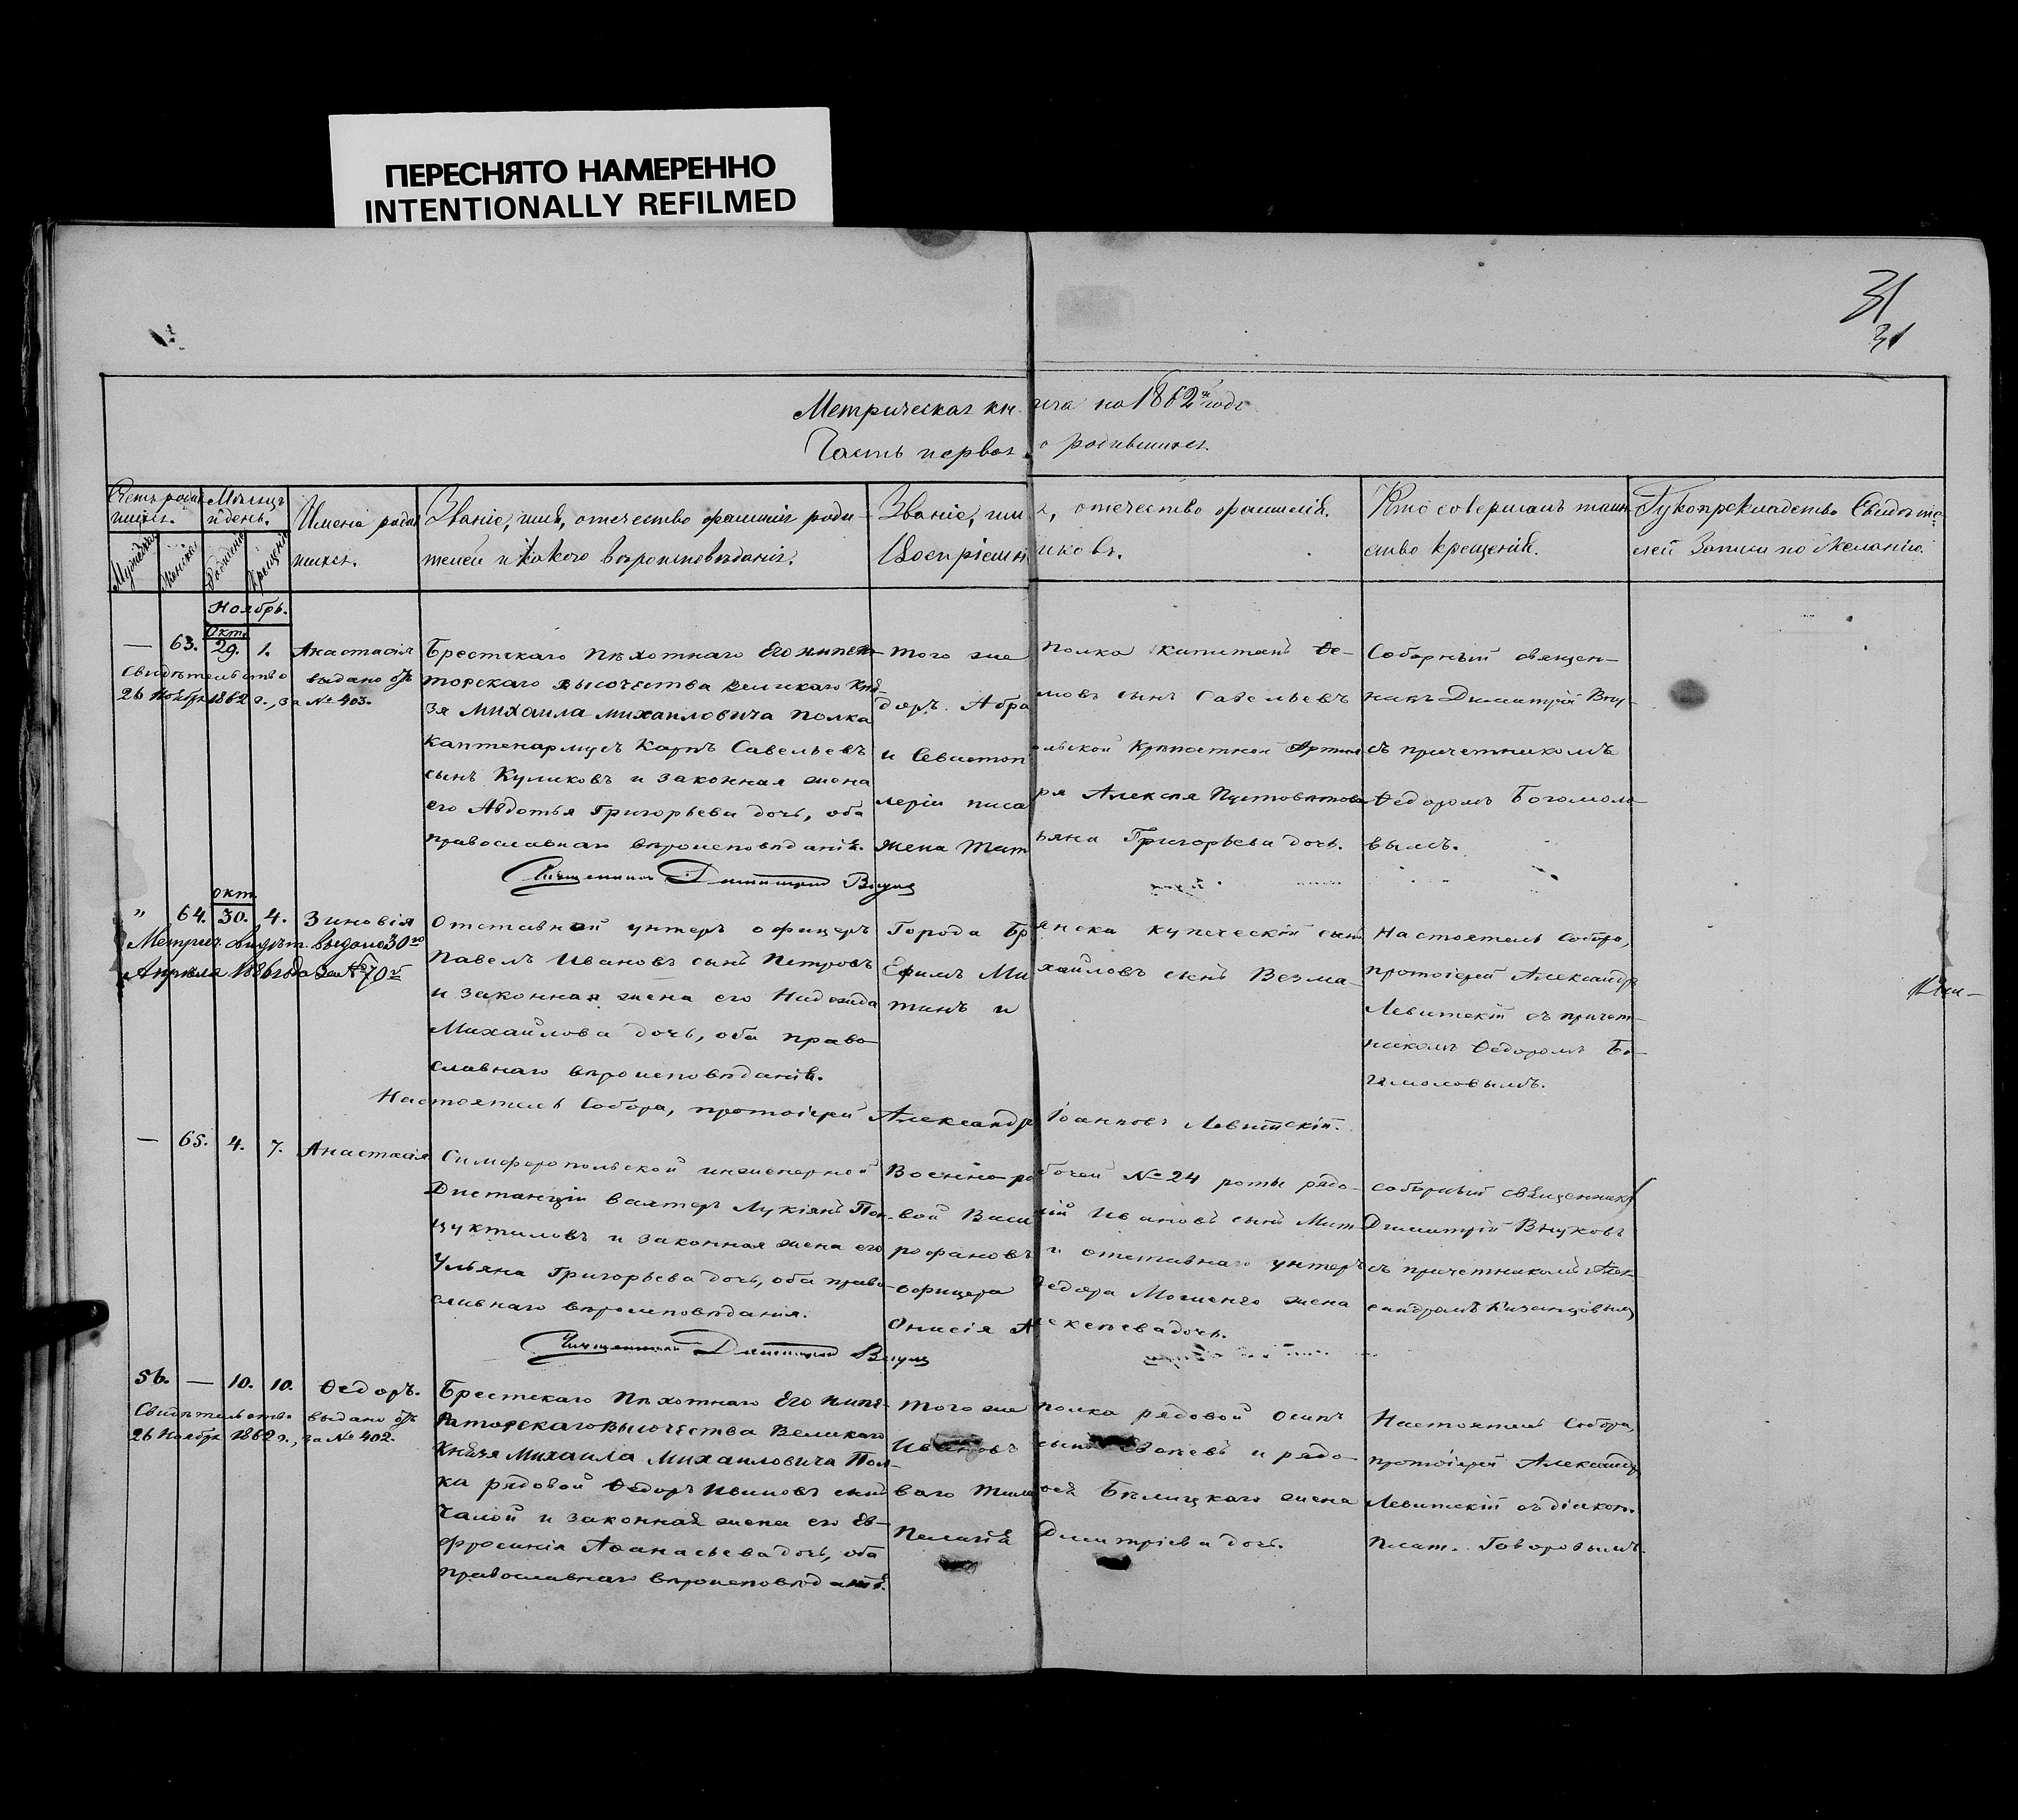 ПЕРЕСНЯТО НАМЕРЕННО
INTENTIONALLY REFILMED
31
31
Метрическая книга на 1862й годъ
Часть первая о родившихся.
Счетъ родив-
шихся.
Мужеска
Женска
Мѣсяцъ
и день.
Рожденія
Крещенія
Имена родив-
шихся.
Званіе, имя, отечество фамилія роди-
телей и какого вѣроисповѣданія.
Званіе, имя, отечество фамилія.
Воспріемниковъ.
Кто совершалъ таин-
ство крещенія.
Рукоприкладство Свидѣте-
лей Записи по желанію.
Ноябрь.
Окт.
— 63. 29. 1. Анастасія
Свидѣтельство выдано
26 Ноября 1862 г., за № 403.
Брестскаго Пѣхотнаго Его Импера-
торскаго Высочества Великаго Кня-
зя Михаила Михаиловича полка
каптенармусъ Карпъ Савельевъ
сынъ Куликовъ и законная жена
его Авдотья Григорьева дочь, оба
православнаго вѣроисповѣданія.
Того же полка капитанъ Ѳе-
доръ Абрамовъ сынъ Савельевъ
и Севастопольской Крѣпостной Артил-
леріи писаря Алексѣя Пустовитова
жена Татьяна Григорьева дочь.
Соборный священ-
никъ Димитрій Вну-
съ причетникомъ
Ѳедоромъ Богомоло-
вымъ.
Священникъ Димитрій Внуковъ
окт.
" 64. 30. 4. Зиновія
Метрич. свидѣт. выдано 30го
Апрѣля 1886 года за № 70й
Отставной унтеръ офицеръ
Павелъ Ивановъ сынъ Петровъ
и законная жена его Надежда
Михайлова дочь, оба право-
славнаго вѣроисповѣданія.
Города Брянска купеческій сынъ
Ефимъ Михайловъ сынъ Везма-
тинъ и
Настоятель Собора,
протоіерей Александръ
Левитскій съ причет-
никомъ Ѳедоромъ Бо-
гомоловымъ.
Настоятель Собора, протоіерей Александръ Іоанновъ Левитскій.
— 65. 4. 7. Анастасія
Симферопольской инженерной
Дистанціи вахтеръ Лукіянъ Пон-
цуктиловъ и законная жена его
Ульяна Григорьева дочь, оба право-
славнаго вѣроисповѣданія.
Военно-рабочей № 24 роты рядо-
вой Василій Ивановъ сынъ Мит-
рофановъ и отставнаго унтеръ
офицера Ѳедора Мошенго жена
Онисія Алексѣева дочь.
Соборный священникъ
Димитрій Внуковъ
съ причетникомъ Алек-
сандромъ Казанцовымъ
Священникъ Димитрій Внуковъ
56. — 10. 10. Ѳедоръ.
Свидѣтельство выдано
26 Ноября 1862 г., за № 402.
Брестскаго Пѣхотнаго Его Импе-
раторскаго Высочества Великаго
Князя Михаила Михаиловича Пол-
ка рядовой Ѳедоръ Ивановъ сынъ
Чалой и законная жена его Ев-
фросинія Аѳанасьева дочь, оба
православнаго вѣроисповѣданія.
Того же полка рядовой Осипъ
Ивановъ сынъ и рядо-
ваго Тимоѳея Бѣлицкаго жена
Пелагія Димитріева дочь.
Настоятель Собора,
протоіерей Александръ
Левитскій съ діакон.
Плат. Говоровымъ.